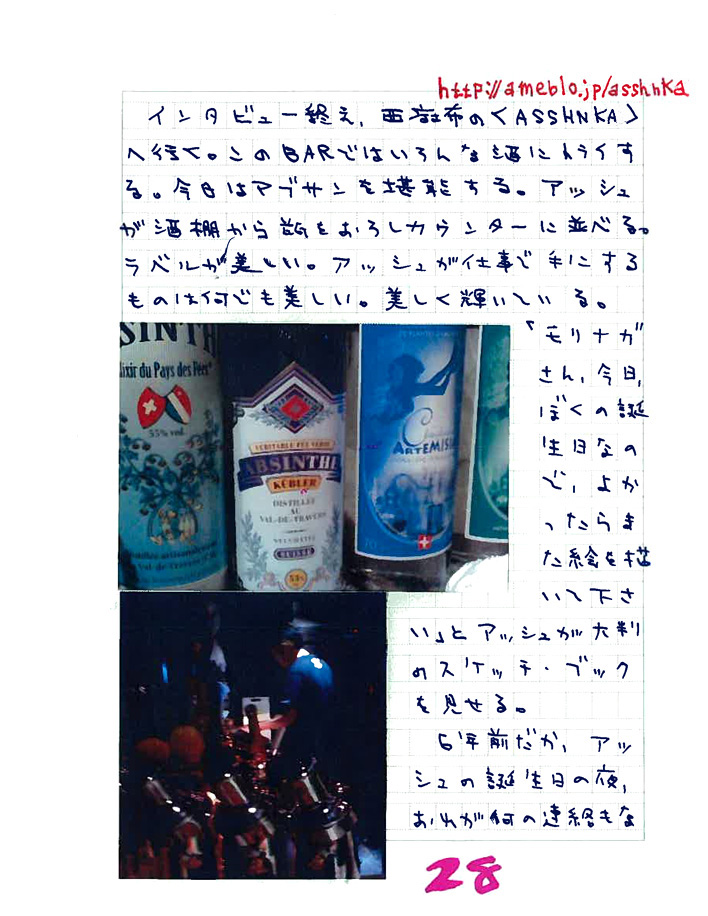 http://ameblo.jp/asshnka
インタビュー終え、西麻布の〈ASSHNKA〉
へ行く。このBARではいろんな酒にトライす
る。今日はアブサンを堪能する。アッシュ
が酒棚から瓶をおろしカウンターに並べる。
ラベルが美しい。アッシュが仕事で手にする
ものは何でも美しい。美しく輝いている。
「モリナガ
さん、今日、
ぼくの誕
生日なの
で、よか
ったらま
た絵を描
いて下さ
い」とアッシュが大判
のスケッチ・ブック
を見せる。
6年前だか、アッ
シュの誕生日の夜、
おれが何の連絡もな
SINTH
lixir du Pays des Fées
55% vol.
VÉRITABLE FÉE VERTE
ABSINTHE
KÜBLER
DISTILLÉE
AU
VAL-DE-TRAVERS
SUISSE
53%
ARTEMISIA
28